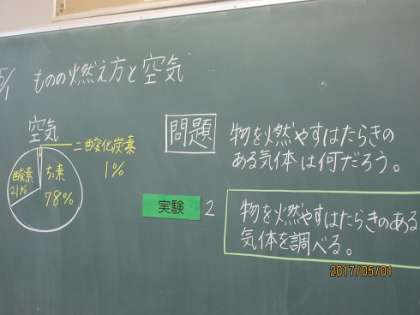 5/1 ものの燃え方と空気
空気
二酸化炭素
1%
酸素
21%
ちっ素
78%
問題
物を燃やすはたらきの
ある気体は何だろう。
実験 2
物を燃やすはたらきのある
気体を調べる。
2017/05/01